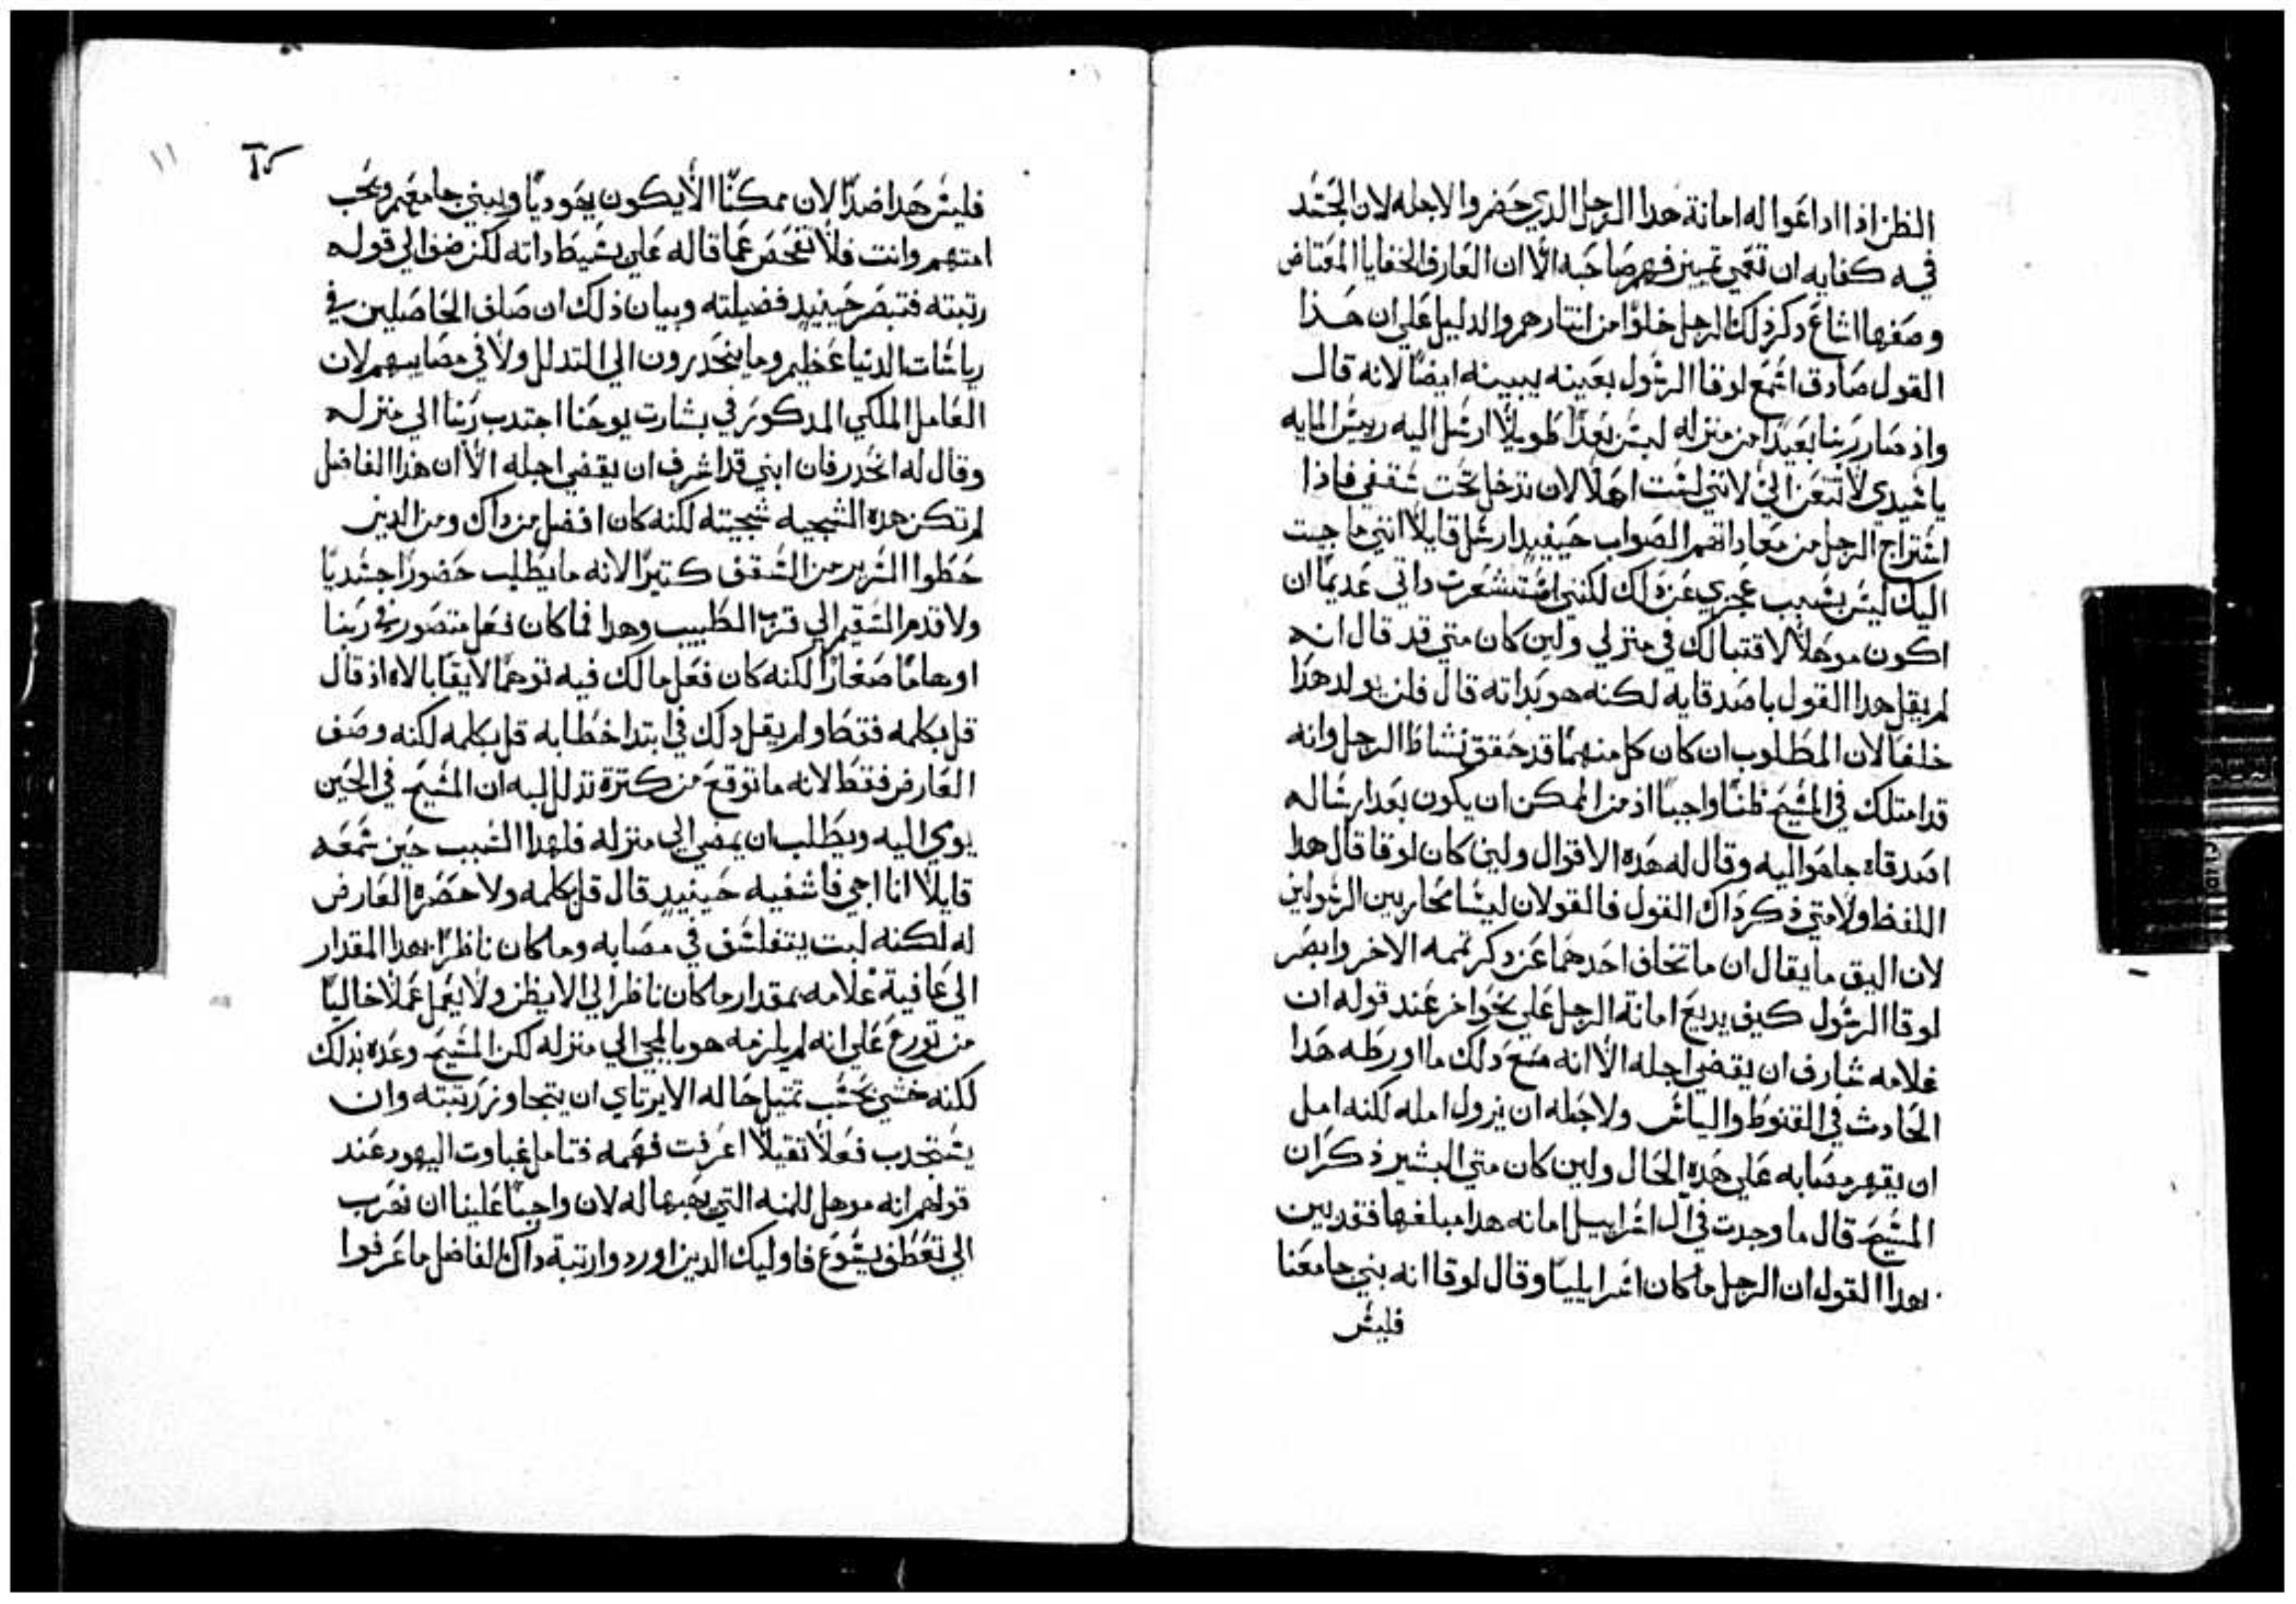 الظن اذا اداعوا له امانة هدا الرجل الدي حضر والاجله لان الحسد
فيه كفايه ان تعمي تمييز فهم صاحبه الاان العارف الخفايا المعتاض
وصفها اشاع دكر ذلك الرجل خلوًا من انتيارهم والدليل علي ان هذا
القول صادق اسمع لوقا الرسول بعينه يبينه ايضًا لانه قال
واذ صار ربنا بعيدًا من منزله ليس بعدًا طويلًا ارسل اليه رييس المايه
يا سيدي لا تتعن الي لانني لست اهلًا لان تدخل تحت سقفي فاذا
استراح الرجل من معاداتهم الصواب حينيدٍ ارسل قايلًا انني ما جيت
اليك ليس بسبب عجزي عن دلك لكنني استشعرت داتي عديمًا ان
اكون موهلًا لاقتبالك في منزلي ولين كان متي قد قال انه
لم يقل هدا القول باصدقايه لكنه هو بداته قال فلن يولد هذا
خلفًا لان المطلوب ان كان كل منهما قد حقق نشاط الرجل وانه
قد امتلك في المسيح ظنًا واجبًا اذ من الممكن ان يكون بعد ارساله
اصدقاه جا هو اليه وقال له هده الاقوال ولين كان لوقا قال هدا
اللفظ ولا متي ذكر داك القول فالقولان ليسا محاربين الرسولين
لان اليق ما يقال ان ما تخاف احدهما عن دكر تممه الاخر وابصر
لوقا الرسول كيف يديع امانة الرجل علي نحو اخر عند قوله ان
غلامه شارف ان يقضي اجله الا انه مع دلك ما اورطه هدا
الحادث في القنوط والياس ولا جعله ان يزول امله لكنه امل
ان يقهر مصابه علي هده الحال ولين كان متي البشير ذكر ان
المسيح قال ما وجدت في ال اسراييل امانه هدا مبلغها فقد بين
بهدا القول ان الرجل ما كان اسرايليًا وقال لوقا انه بني جامعنا
فليس
١١
فليس هدا ضدًا لان ممكنًا الا يكون يهوديًا ويبني جامعهم ويحب
امتهم وانت فلا تفحص عما قاله علي بسيط داته لكن ضف الي قوله
رتبته فتبصر حينيدٍ فضيلته وبيان ذلك ان صلف الحاصلين في
رياسات الدنيا عظيم وما ينحدرون الي التدلل ولا في مصايبهم لان
العامل الملكي المدكور في بشارت يوحنا اجتدب ربنا الي منزله
وقال له انحدر فان ابني قد اشرف ان يقضي اجله الا ان هدا الفاضل
لم تكن هده السجيه سجيته لكنه كان افضل من داك ومن الدين
حطوا السرير من السقف كتيرًا لانه ما يطلب حضورًا جسديًا
ولا قدم السقيم الي قرب الطبيب وهدا فما كان فعل متصور نحو ربنا
اوهامًا صغارًا لكنه كان فعل مالك فيه توهمًا لايقًا بالاه اذ قال
قل بكلمه فقط ولم يقل دلك في ابتدا خطابه قل بكلمه لكنه وصف
العارض فقط لانه ما توقع من كترة تدللـه ان المسيح في الحين
يومي اليه ويطلب ان يمضي الي منزله فلهدا السبب حين سمعه
قايلًا انا اجي فاشفيه حينيدٍ قال قل بكلمه ولا حضره العارض
له لكنه لبت يتفلسف في مصابه وما كان ناظرًا بهدا المقدار
الي عافية غلامه بمقدار ما كان ناظرًا الي الا يظن ولا يعمل عملًا خاليًا
من تورع علي انه لم يلزمه هو بالمجي الي منزله لكن المسيح وعده بدلك
لكنه خشي بحسب تمتيل حاله الا يرتاي ان يتجاوز رتبته وان
يستجدب فعلًا تقيلًا اعرفت فهمه فتامل غباوت اليهود عند
قولهم انه موهل للمنه التي يهبها له لان واجبًا علينا ان نهرب
الي تعطف يسوع فاوليك الدين اوردوا رتبة داك الفاضل ما عرفوا